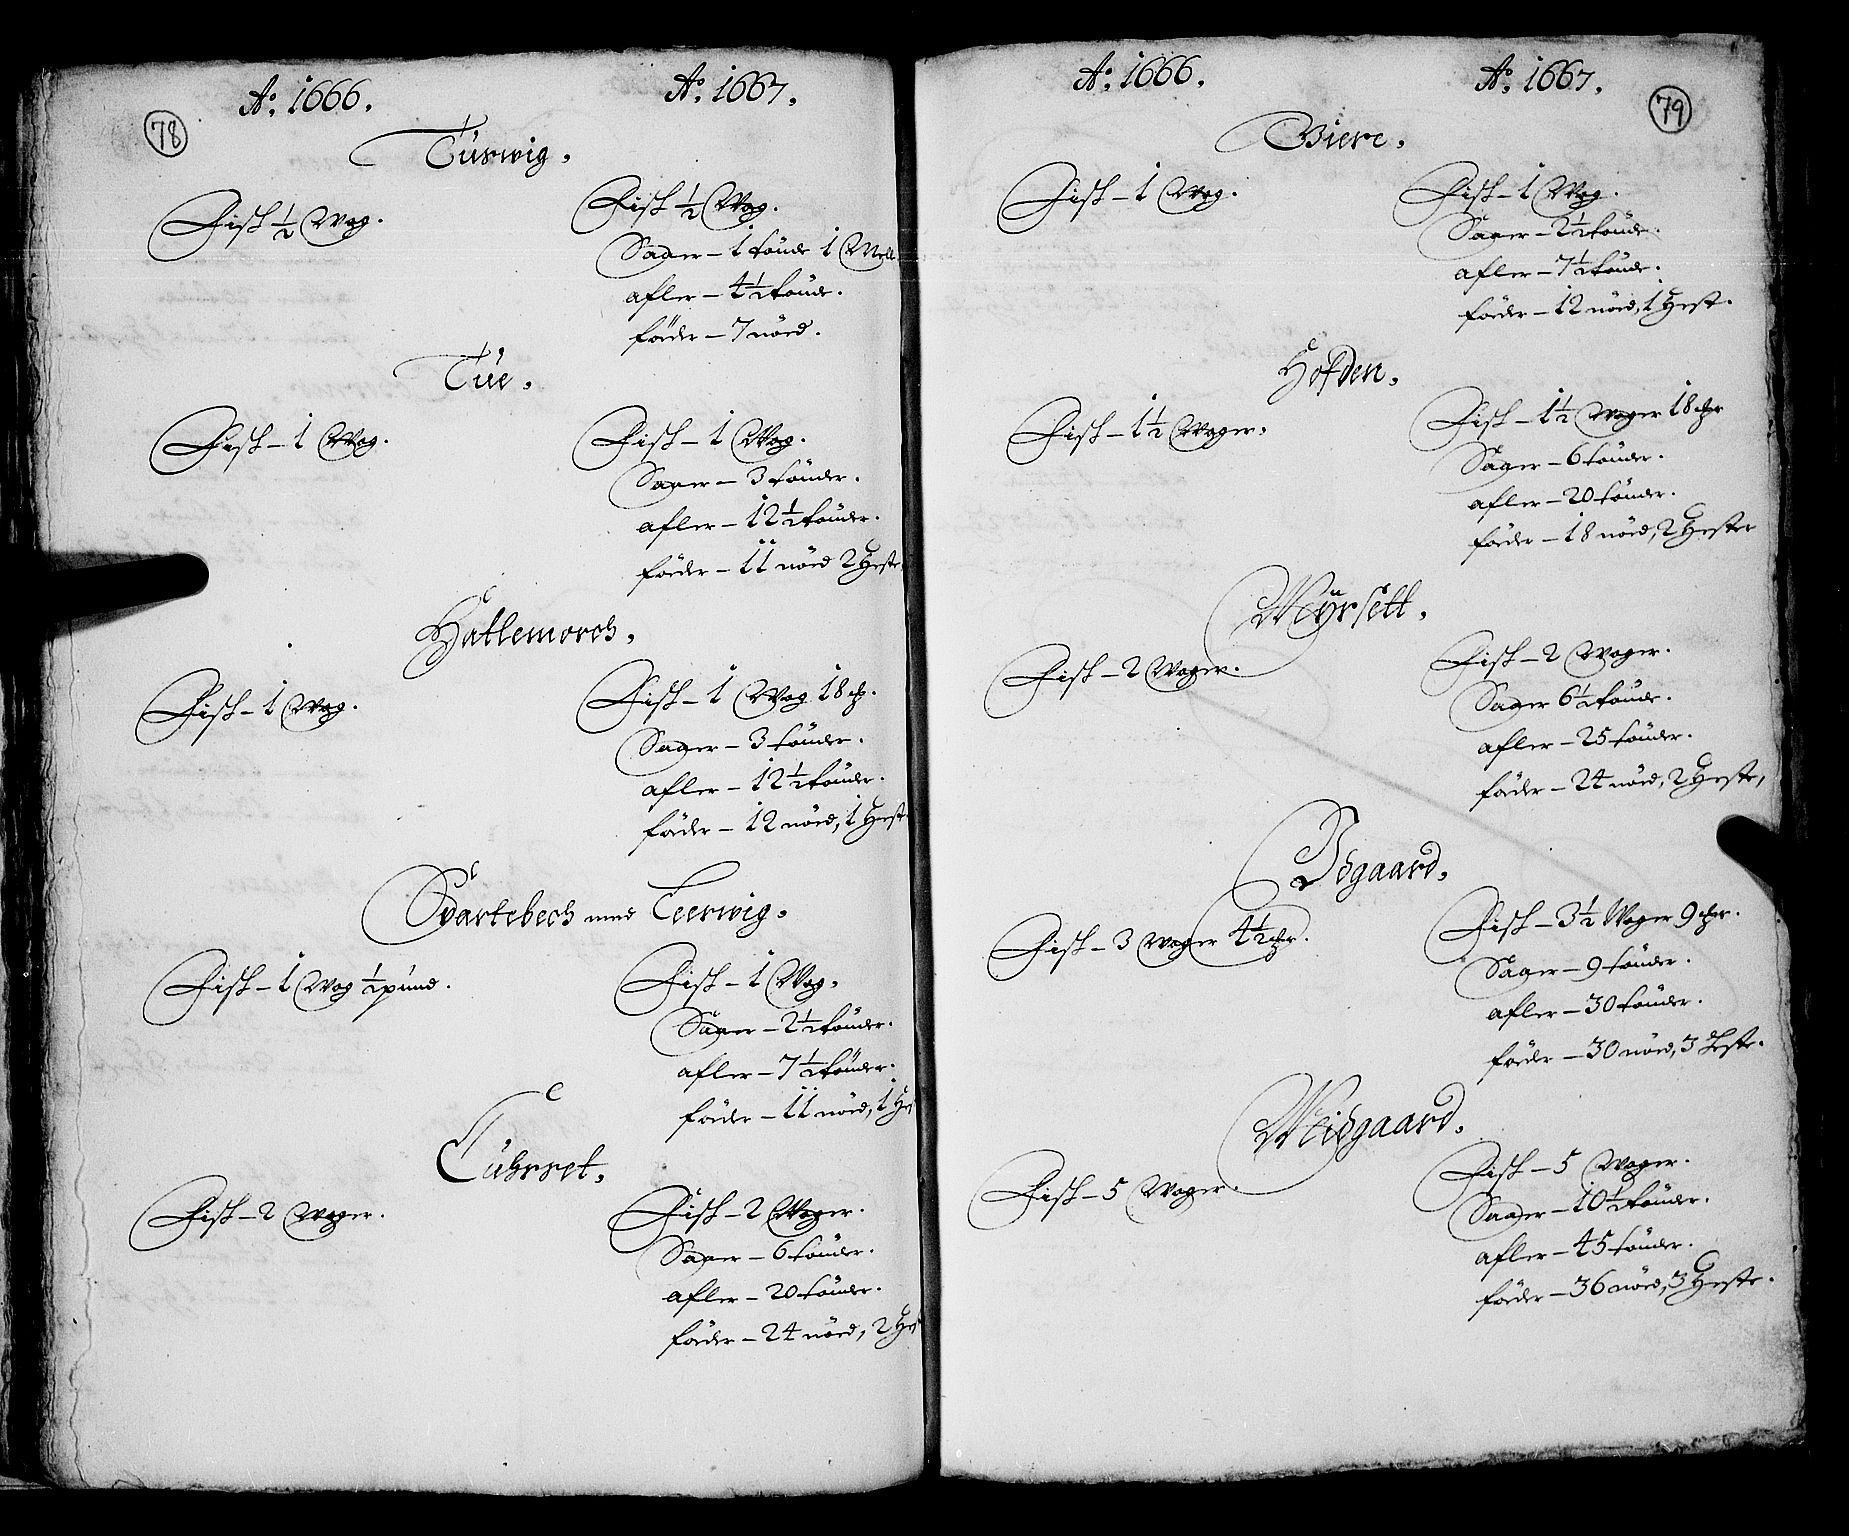 78
Aͦ. 1666.
Aͦ. 1667.
Tuswig.
Fisk ½ Wog.
Fisk ½ Wog.
Saaer – 1 tönde 1 Mell
afler – 4½ tönde.
föder – 7 nöed.
Tue.
Fisk – 1 Wog.
Fisk – 1 Wog.
Saaer – 3 tönder.
afler – 12½ tönder.
föder – 11 nöed 2 Heste
Hatlemorch.
Fisk – 1 Wog.
Fisk – 1 Wog 18
Saaer – 3 tönder.
afler – 12½ tönder.
föder – 12 nöed, 1 Hest
Svartebech med Leerwig.
Fisk – 1 Wog ½ pund.
Fisk – 1 Wog.
Saaer – 2½ tönder.
afler – 7½ tönder.
föder – 11 nöed, 1 Hes
Tuhsret.
Fisk – 2 Woger.
Fisk – 2 Woger.
Saaer – 6 tönder.
afler – 20 tönder.
föder – 24 nöed, 2 Hes
79
Aͦ. 1666.
Aͦ. 1667.
Biere.
Fisk – 1 Wog.
Fisk – 1 Wog.
Saaer – 2½ tönde.
afler – 7½ tönde.
föder – 12 nöed, 1 Hest.
Hofden.
Fisk – 1½ Woger.
Fisk – 1½ Woger 18
Saaer – 6 tönder.
afler – 20 tönder.
föder – 18 nöed, 2 Hester
Myrsett.
Fisk – 2 Woger.
Fisk – 2 Woger.
Saaer 6½ tönde.
afler – 25 tönder.
föder – 24 nöed, 2 Heste,
Idgaard.
Fisk – 3 Woger 4½
Fisk – 3½ Woger 9
Saaer – 9 tönder.
afler – 30 tönder.
föder – 30 nöed, 3 Heste.
Meidgaard.
Fisk – 5 Woger.
Fisk – 5 Woger.
Saaer – 10½ tönder.
afler – 45 tönder.
föder – 36 nöed, 3 Heste.